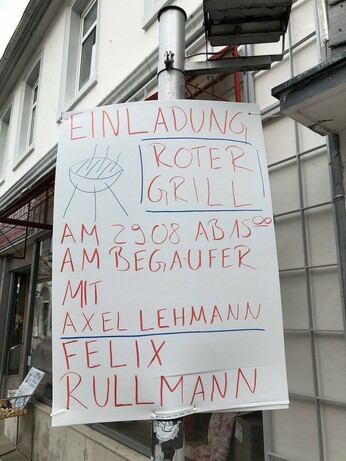 EINLADUNG
ROTER
GRILL
AM 29.08 AB 15⁰⁰
AM BEGAUFER
MIT
AXEL LEHMANN
FELIX
RULLMANN